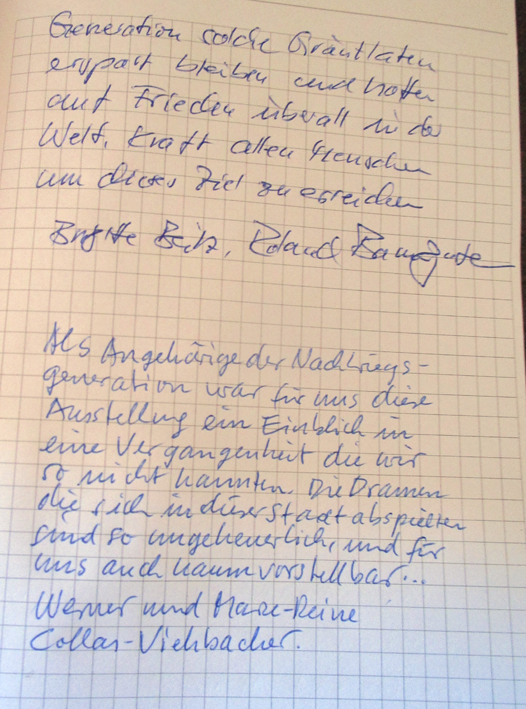 Generation solche Gräultaten
erspart bleiben und hoffen
auf Frieden überall in der
Welt. Kraft allen Menschen
um dieses Ziel zu erreichen
Brigitte Roland
Als Angehörige der Nachkriegs-
generation war für uns diese
Ausstellung ein Einblich in
eine Vergangenheit die wir
so nicht kannten. Die Dramen
die sich in dieser Stadt abspielten
sind so ungeheuerlich, und für
uns auch kaum vorstellbar...
Werner und Marie-Reine
Collas-Viehbacher.